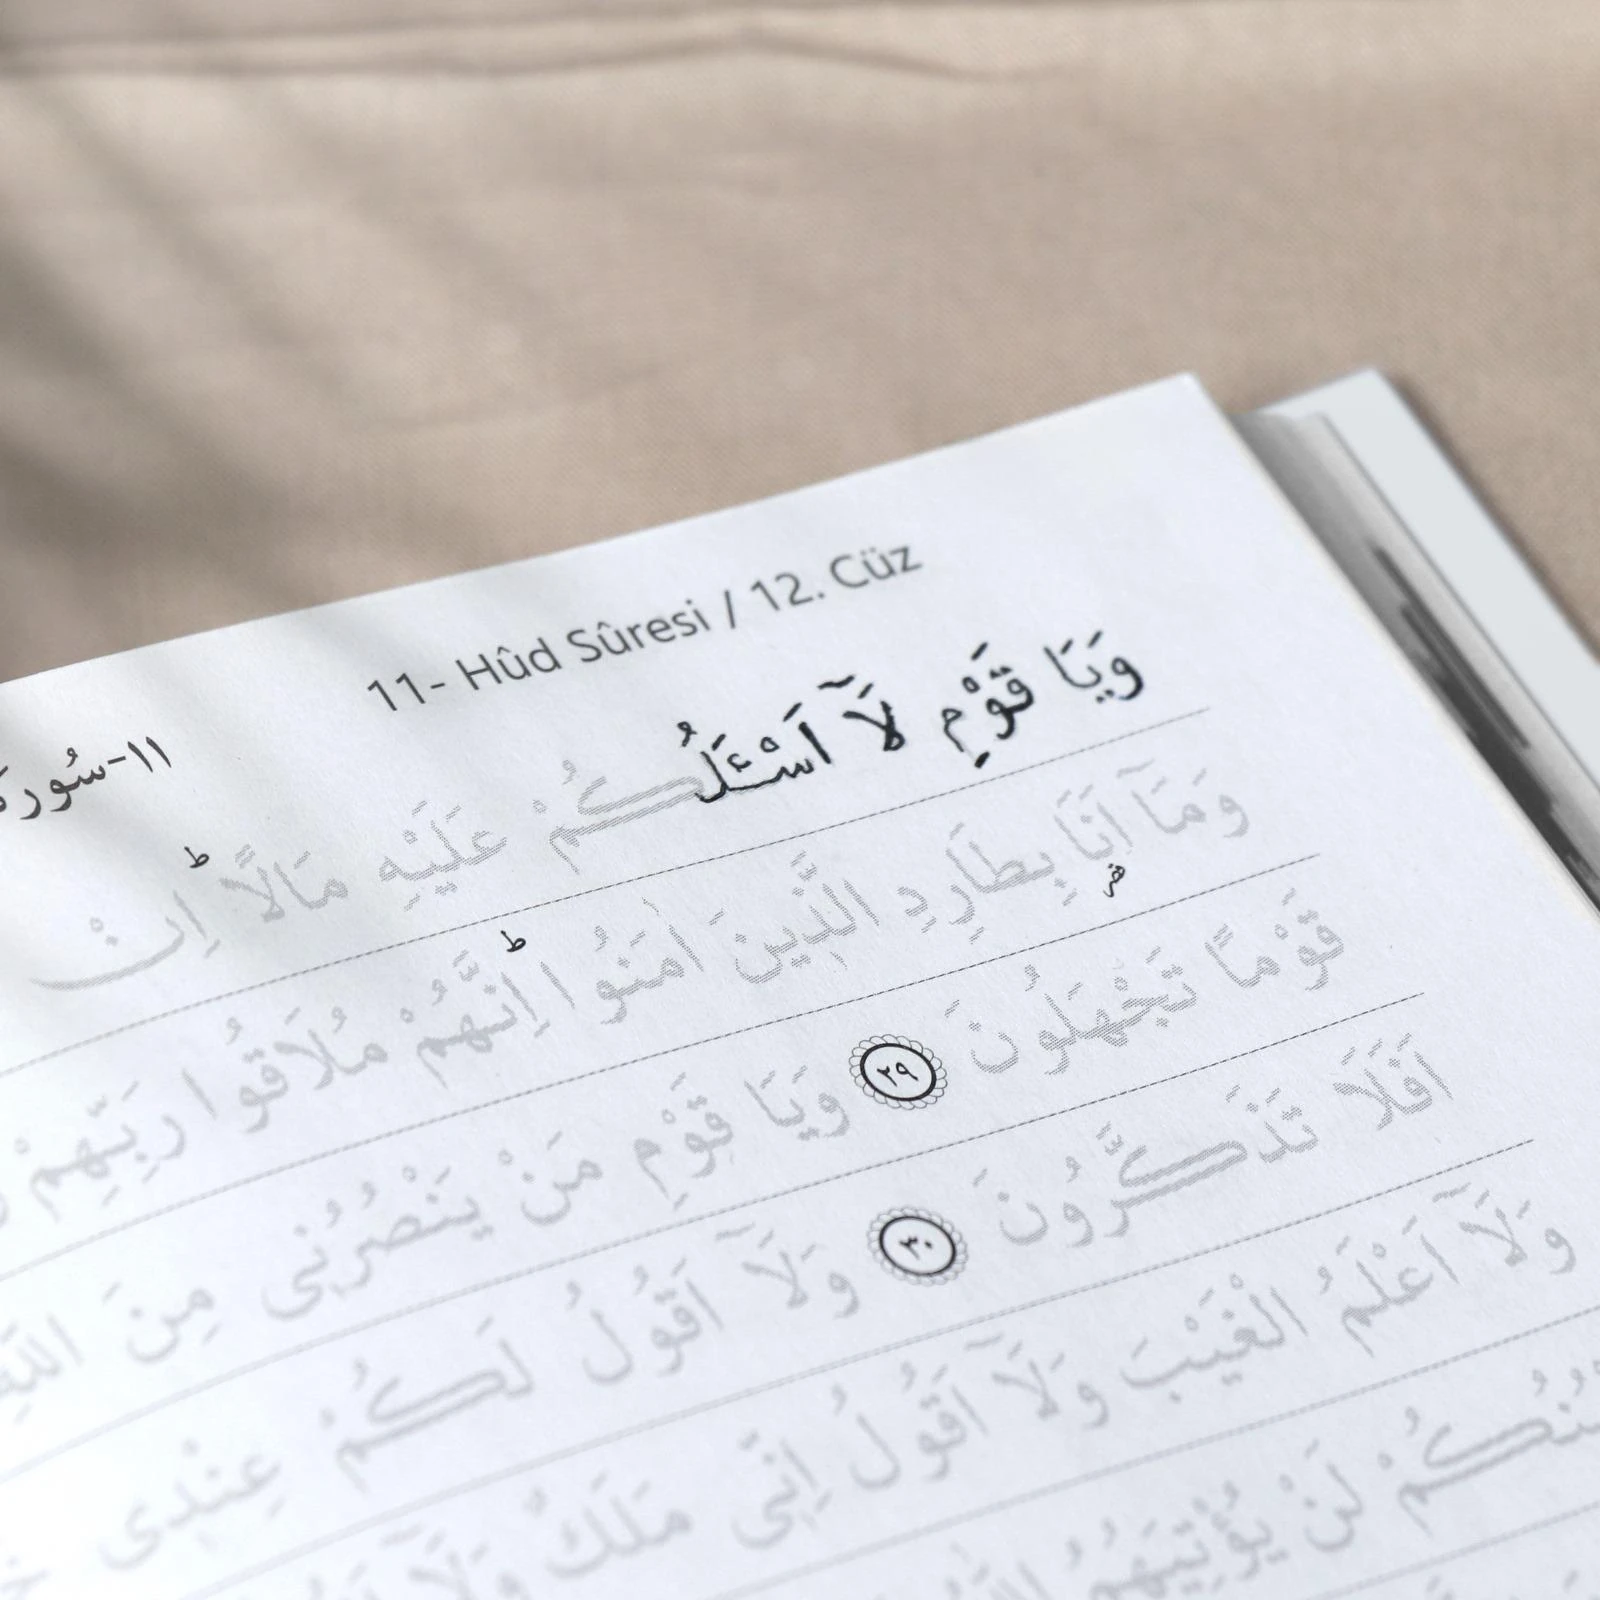 11- Hûd Sûresi / 12. Cüz
١١-سُورة
وَيَا قَوْمِ لَٓا اَسْـَٔلُكُمْ عَلَيْهِ مَالًاۜ اِنْ
وَمَٓا اَنَا۬ بِطَارِدِ الَّذ۪ينَ اٰمَنُواۜ اِنَّهُمْ مُلَاقُوا رَبِّهِمْ
قَوْمًا تَجْهَلُونَ ﴿٢٩﴾ وَيَا قَوْمِ مَنْ يَنْصُرُن۪ي مِنَ اللّٰهِ
اَفَلَا تَذَكَّرُونَ ﴿٣٠﴾ وَلَٓا اَقُولُ لَكُمْ عِنْد۪ي
وَلَٓا اَعْلَمُ الْغَيْبَ وَلَٓا اَقُولُ اِنّ۪ي مَلَكٌ وَلَٓا
لَنْ يُؤْتِيَهُمُ